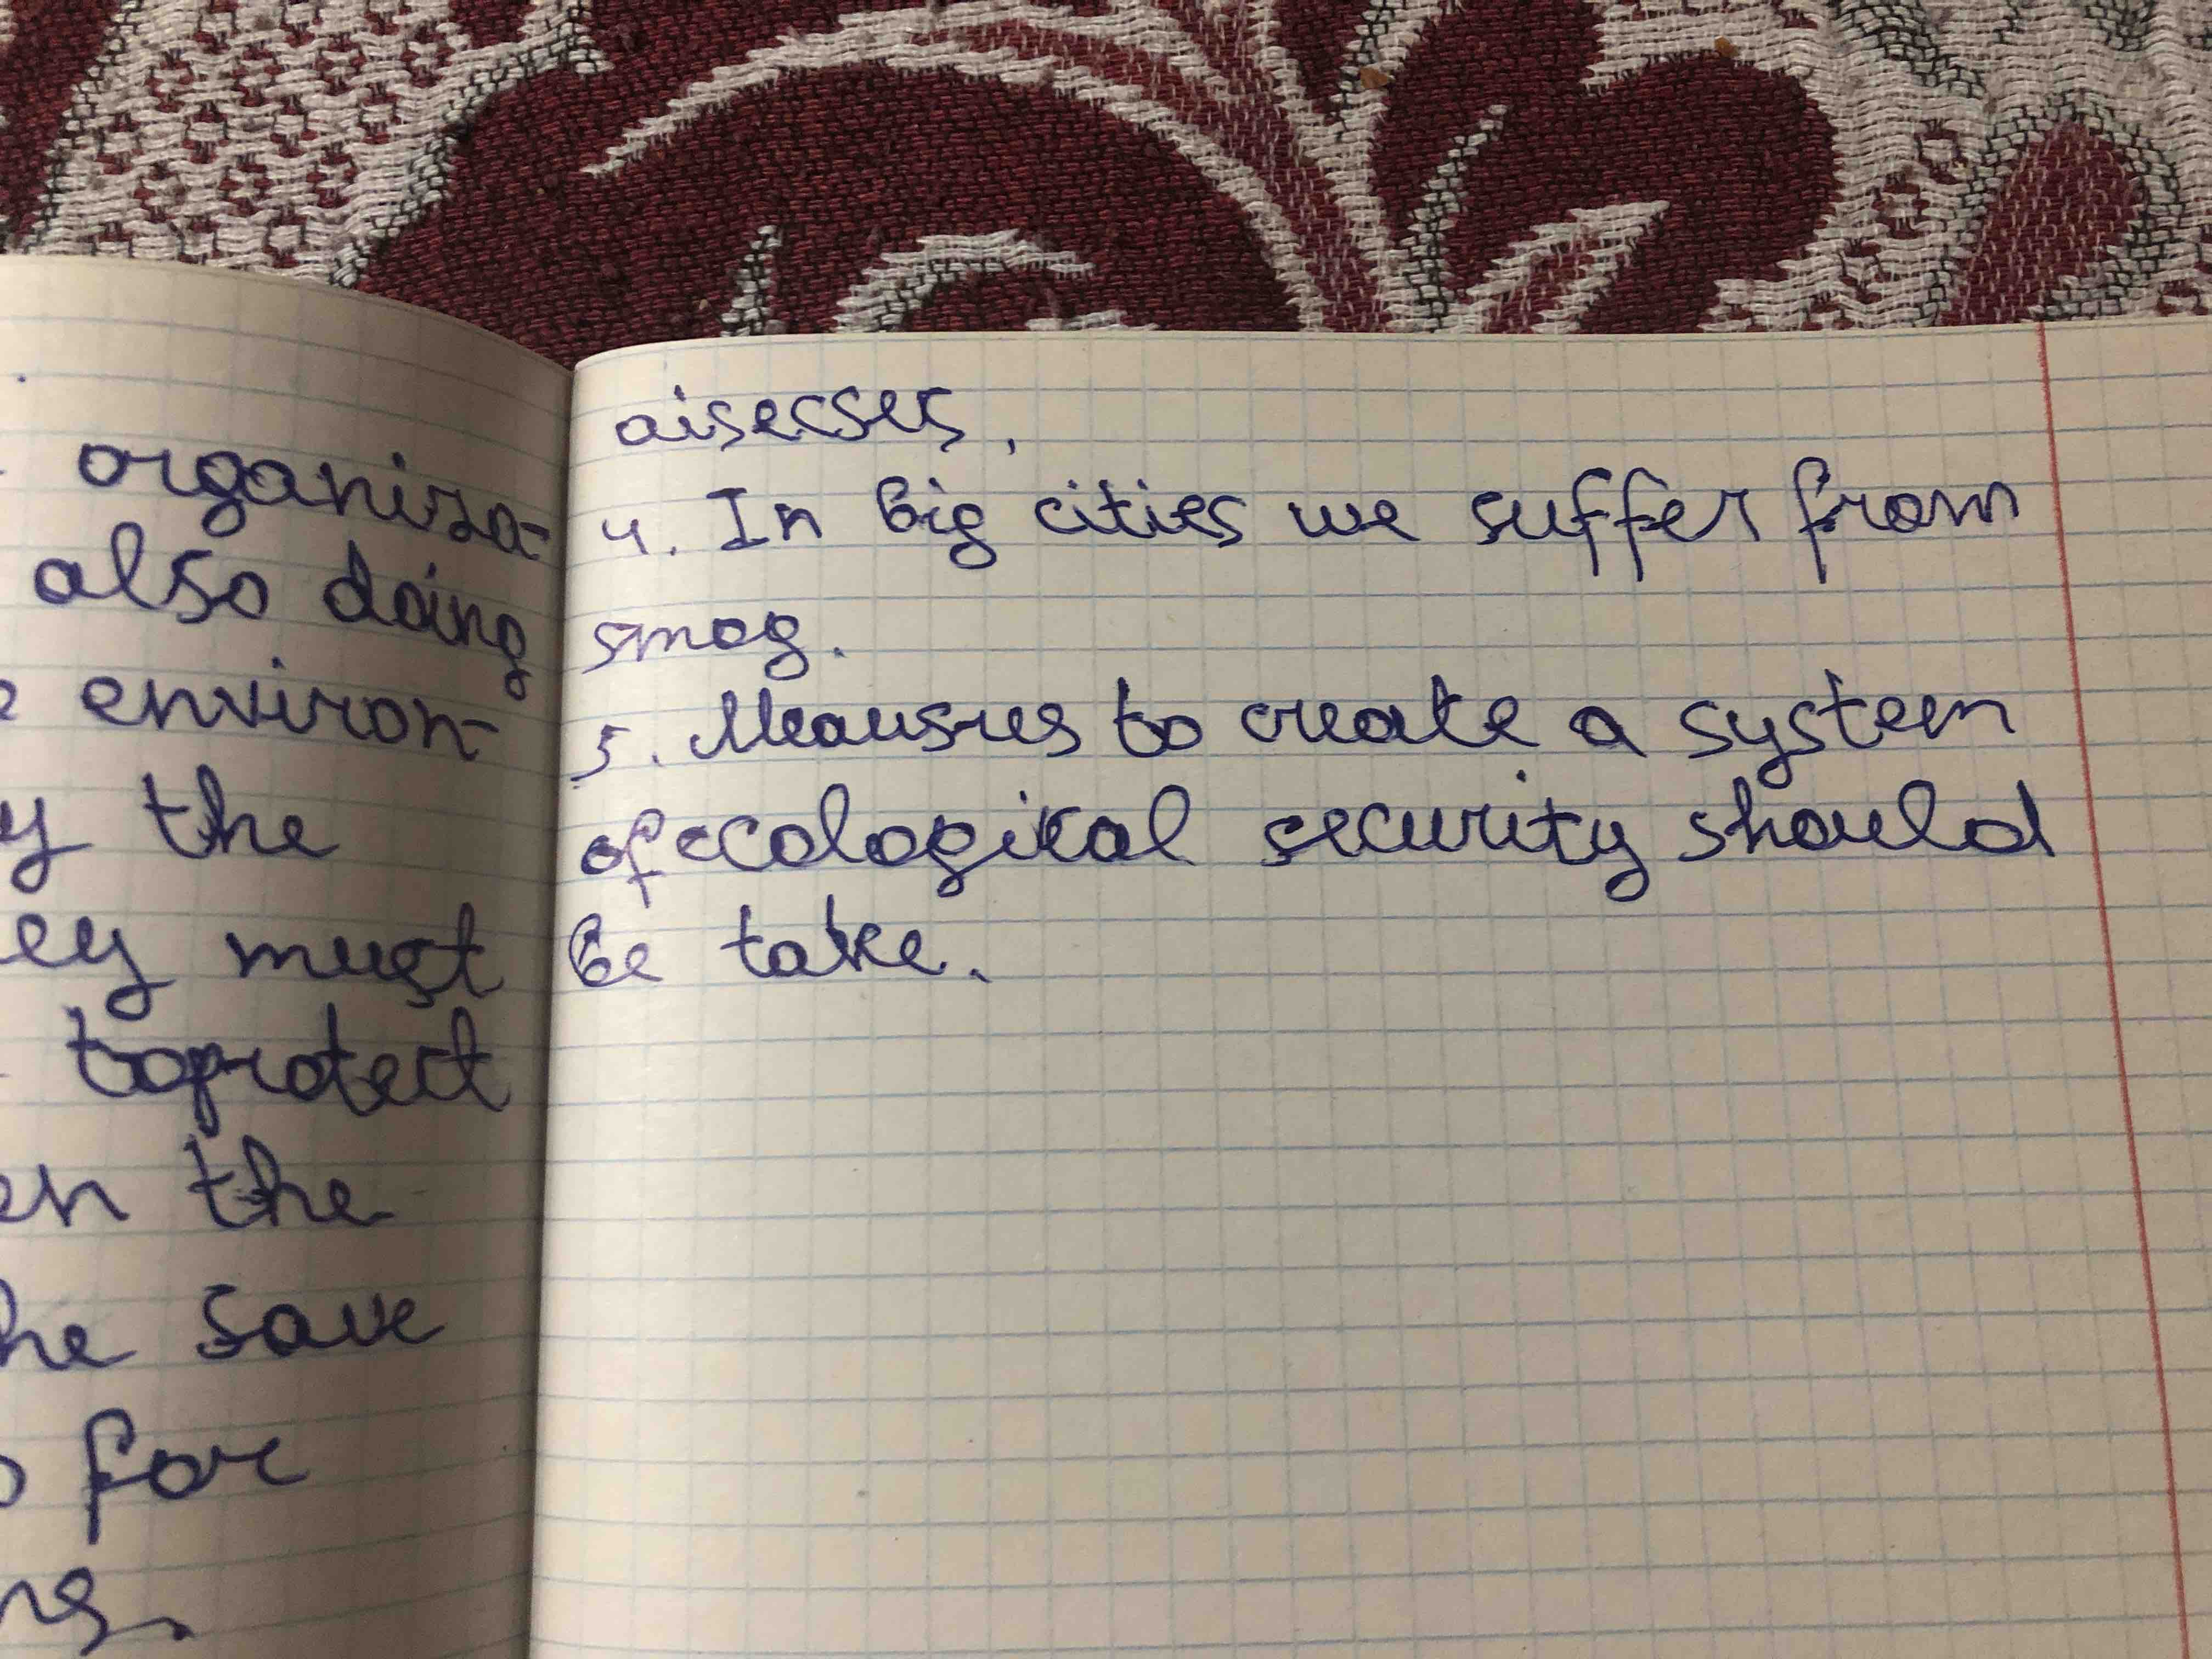 organiza-
also doing
environ-
y the
ey must
toprotect
en the
he save
for
ng.
aisecses.
4. In big cities we suffer from
smog.
5. Meausres to create a system
of ecological security should
be take.